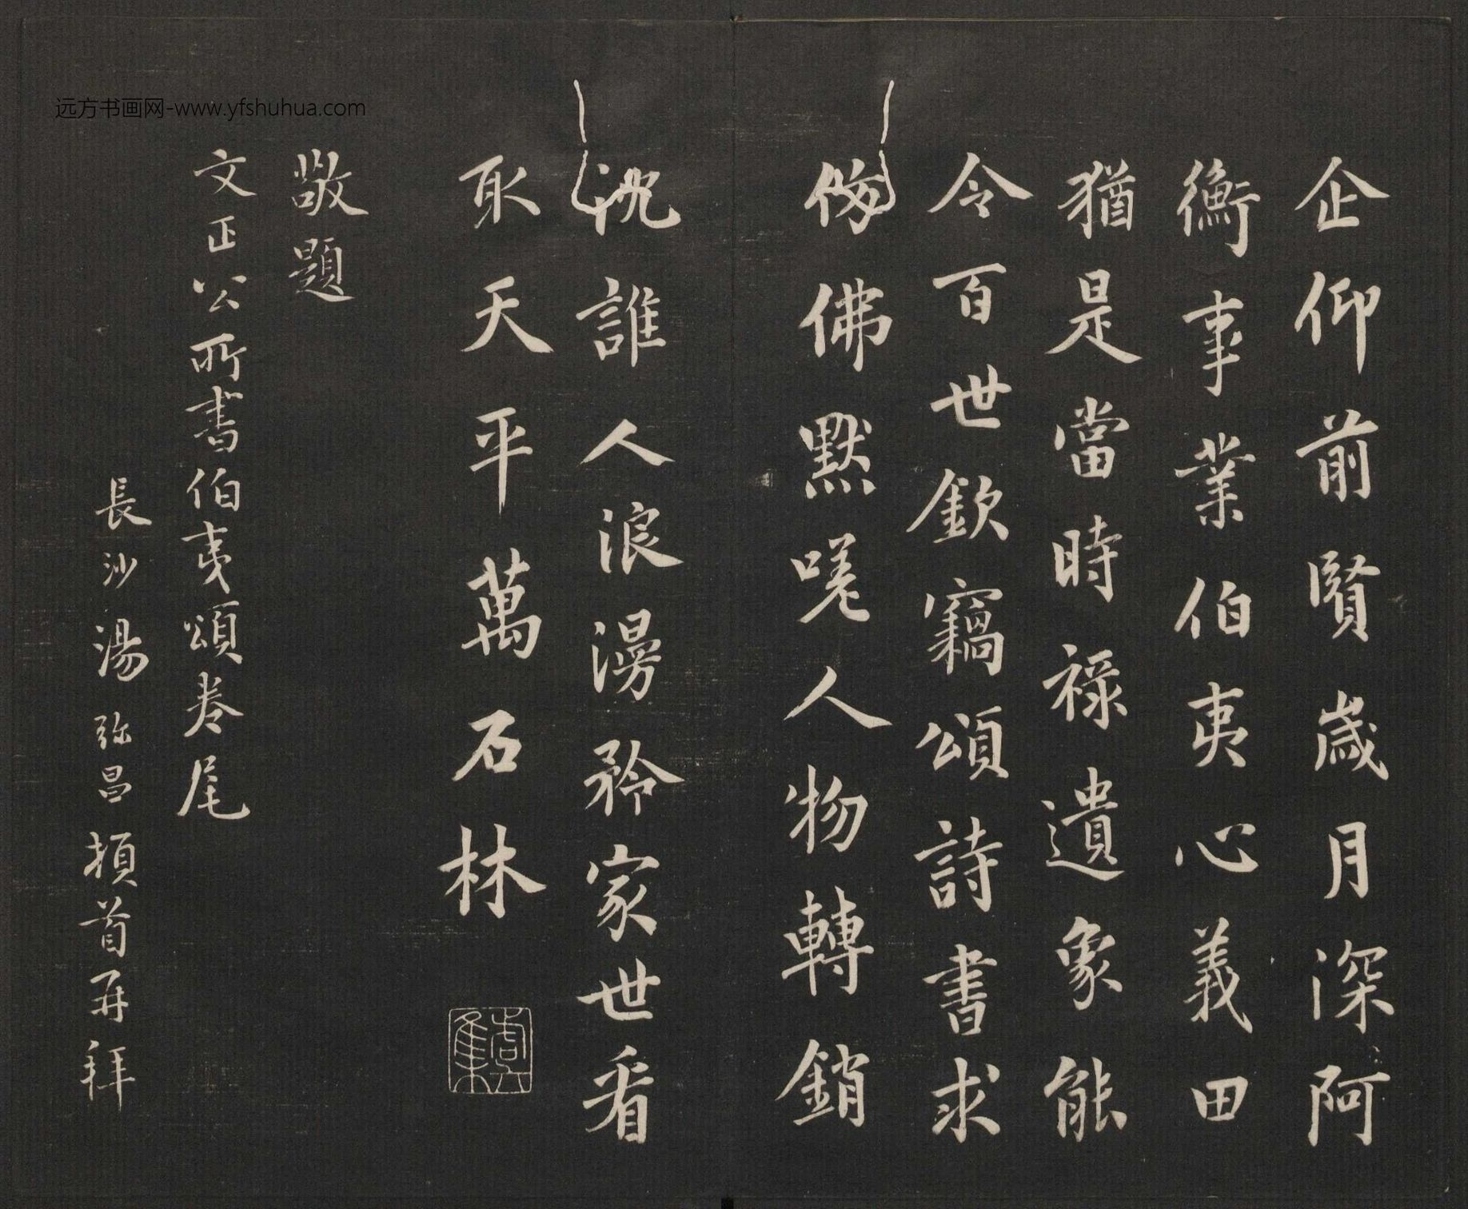 企仰前賢歲月深阿
衡事業伯夷心義田
猶是當時祿遺象能
令百世欽竊頌詩書求
佛默嗟人物轉銷
沈誰人浪漫矜家世看
取天平萬石林
敬題
文正公所書伯夷頌卷尾
長沙湯弥昌頓首再拜
虞集
远方书画网-www.yfshuhua.com